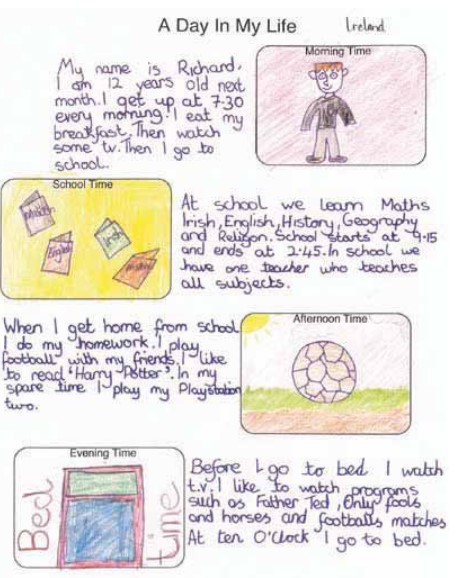 A Day In My Life
Ireland
Morning Time
My name is Richard.
I am 12 years old next
month. I get up at 7·30
every morning. I eat my
breakfast. Then watch
some tv. Then I go to
school.
School Time
English
Irish
At school we learn Maths
Irish, English, History, Geography
and Religion. School starts at 9·15
and ends at 2:45. In school we
have one teacher who teaches
all subjects.
When I get home from school
I do my homework. I play
football with my friends. I like
to read 'Harry Potter'. In my
spare time I play my Playstation
two.
Afternoon Time
Evening Time
Bed
time
Before I go to bed I watch
t.v. I like to watch programs
such as Father Ted, Only fools
and horses and footballs matches
At ten O'Clock I go to bed.